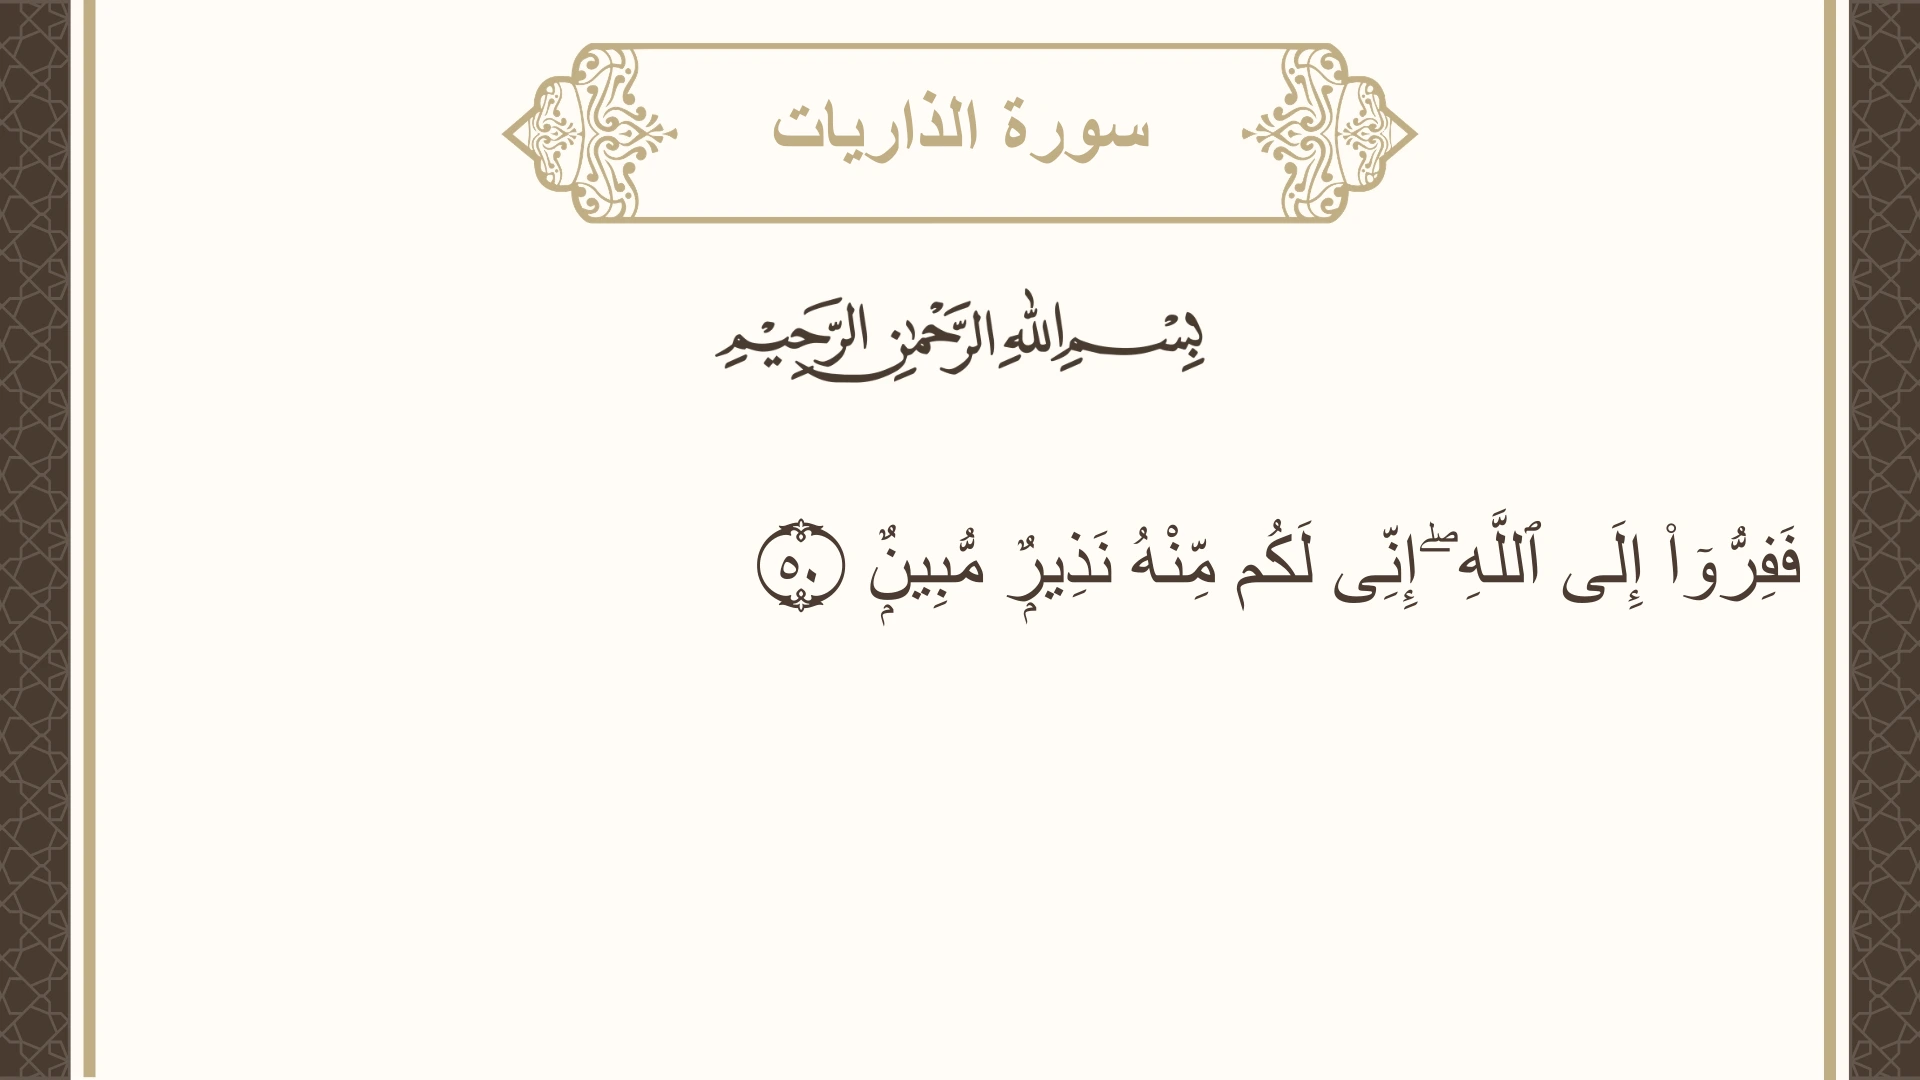 سورة الذاريات
بِسْمِ اللهِ الرَّحْمٰنِ الرَّحِيْمِ
فَفِرُّوٓا۟ إِلَى ٱللَّهِ ۖ إِنِّى لَكُم مِّنْهُ نَذِيرٌۭ مُّبِينٌۭ ٥٠